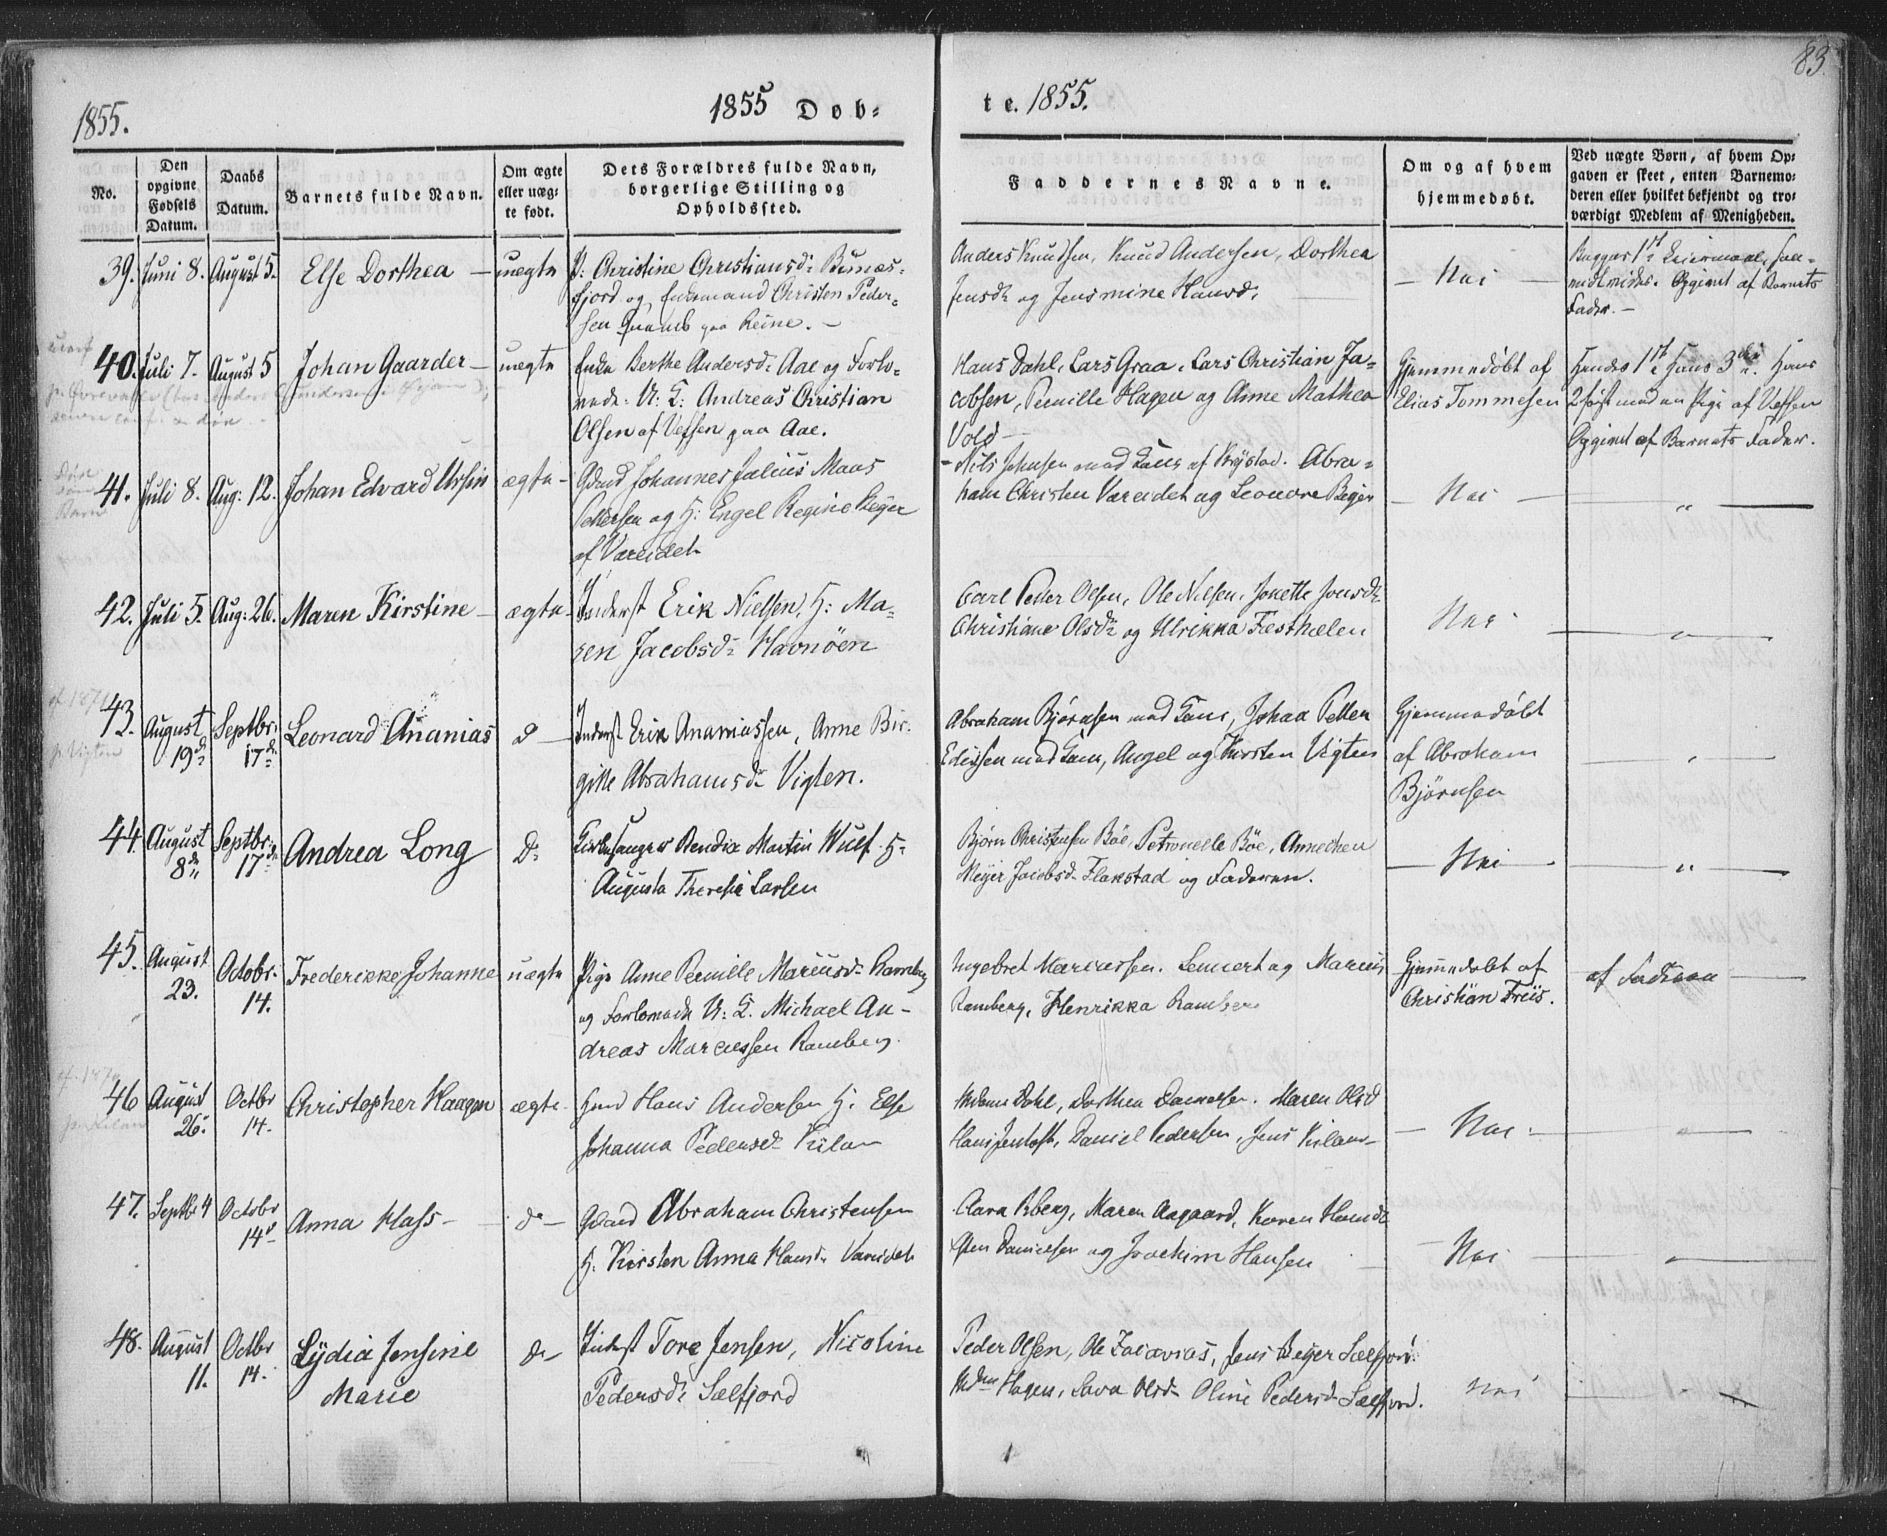 83.
1855.
1855 Døb-
te. 1855.
No.
Den opgivne Fødsels Datum.
Daabs Datum.
Barnets fulde Navn.
Om ægte eller uæg-te født.
Dets Forældres fulde Navn, borgerlige Stilling og Opholdssted.
Faddernes Navne.
Om og af hvem hjemmedøbt.
Ved uægte Børn, af hvem Op-gaven er skeet, enten Barnemo-deren eller hvilket bekjendt og tro-værdigt Medlem af Menigheden.
39. Juni 8. August 5. Else Dorthea — uægte
P: Christine Christiansd:
fjord og Christen Peder-
sen paa Reine. —
Anders Knudsen, Knud Andersen, Dorthea
Jensd: og Jensmine Hansd:
— Nei —
Begges 1ste Leiermaal,
Opgivet af Barnets
Fader. —
40. Juli 7. August 5 Johan Gaarder — uægte
Enke Berthe Andersd: Aae og Forlo-
vede: U: K: Andreas Christian
Olsen af Vefsen paa Aae.
Hans Dahl, Lars Graa, Lars Christian Ja-
cobsen, Pernille Hagen og Anne Mathea
Vold —
Gjemmedøbt af
Elias Tommesen
Hendes 1ste, Hans 3die. Hans
2 først med en Pige af Vefsen
Opgivet af Barnets Fader.
41. Juli 8. Aug: 12. Johan Edvard Ursin ægte —
Gdmd Johannes Julius Maas
Pettersen og H: Engel Regine Beyer
af Vareidet
Nils Johnsen med Kone af Krystad. Abra-
ham Christen Vareidet og Leonore Beyer
— Nei — "
42. Juli 5. Aug: 26. Maren Kirstine — ægte —
Inderst Erik Nielsen, H: Ma-
ren Jacobsd: Havnøen
Carl Peder Olsen, Ole Nilsen, Jonette Jonsd:
Christiane Olsd: og Ulrikka Fæsthælen
Nei "
43. August 19de Septbr: 17de Leonard Ananias D —
Inderst Erik Ananiassen, Anne Bir-
gitte Abrahamsd: Vigten.
Abraham Bjørnsen med Kone, Johan Petter
Edissen med Kone, Angel og Kirsten Vigten
Gjemmedøbt
af Abraham
Bjørnsen
"
44. August 8de Septbr: 17de Andrea Long D:
Kirkesanger Bendix Martin Wulf. H:
Augusta Theresia Larsen
Bjørn Christensen Bøe, Petronelle Bøe, Annechen
Meyer Jacobsd: Flakstad og Faderen.
— Nei — "
45. August 23. Octobr. 14. Frederikke Johanne uægte
Pige Anne Pernille Mariusd: Ramberg
og Forlovede U: K. Michael An-
dreas Marcussen Ramberg.
Ingebret Marcussen. Lennert og Marcus
Ramberg, Henrikka Ramberg
Gjemmedøbt af
Christian Friis.
af Faderen —
46 August 26. Octbr 14. Christopher Haagen ægte.
Gmd Hans Andersen H: Else
Johanna Pedersd: Kilan
Mdme Dahl, Dorthea Danielsen. Maren Olsd
Hans Jentoft, Daniel Pedersen, Jens Kilan —
— Nei — "
47. Septbr 4 Octobr 14de Anna Hass — do —
Gdmd Abraham Christensen
H. Kirsten Anna Hansd: Vareidet
Clara Rberg, Maren Aagaard, Karen Hansd:
Sten Danielsen og Joachim Hansen
— Nei — "
48. August 11. Octbr 14. Lydia Jensine
Marie
do —
Inderst Tore Jensen, Nicoline
Pedersd: Sælfjord
Peder Olsen, Ole Zacarias, Jens Beyer Sælfjord.
Mdme Hagen, Sara Olsd: Oline Pedersd: Sælfjord.
Nei "